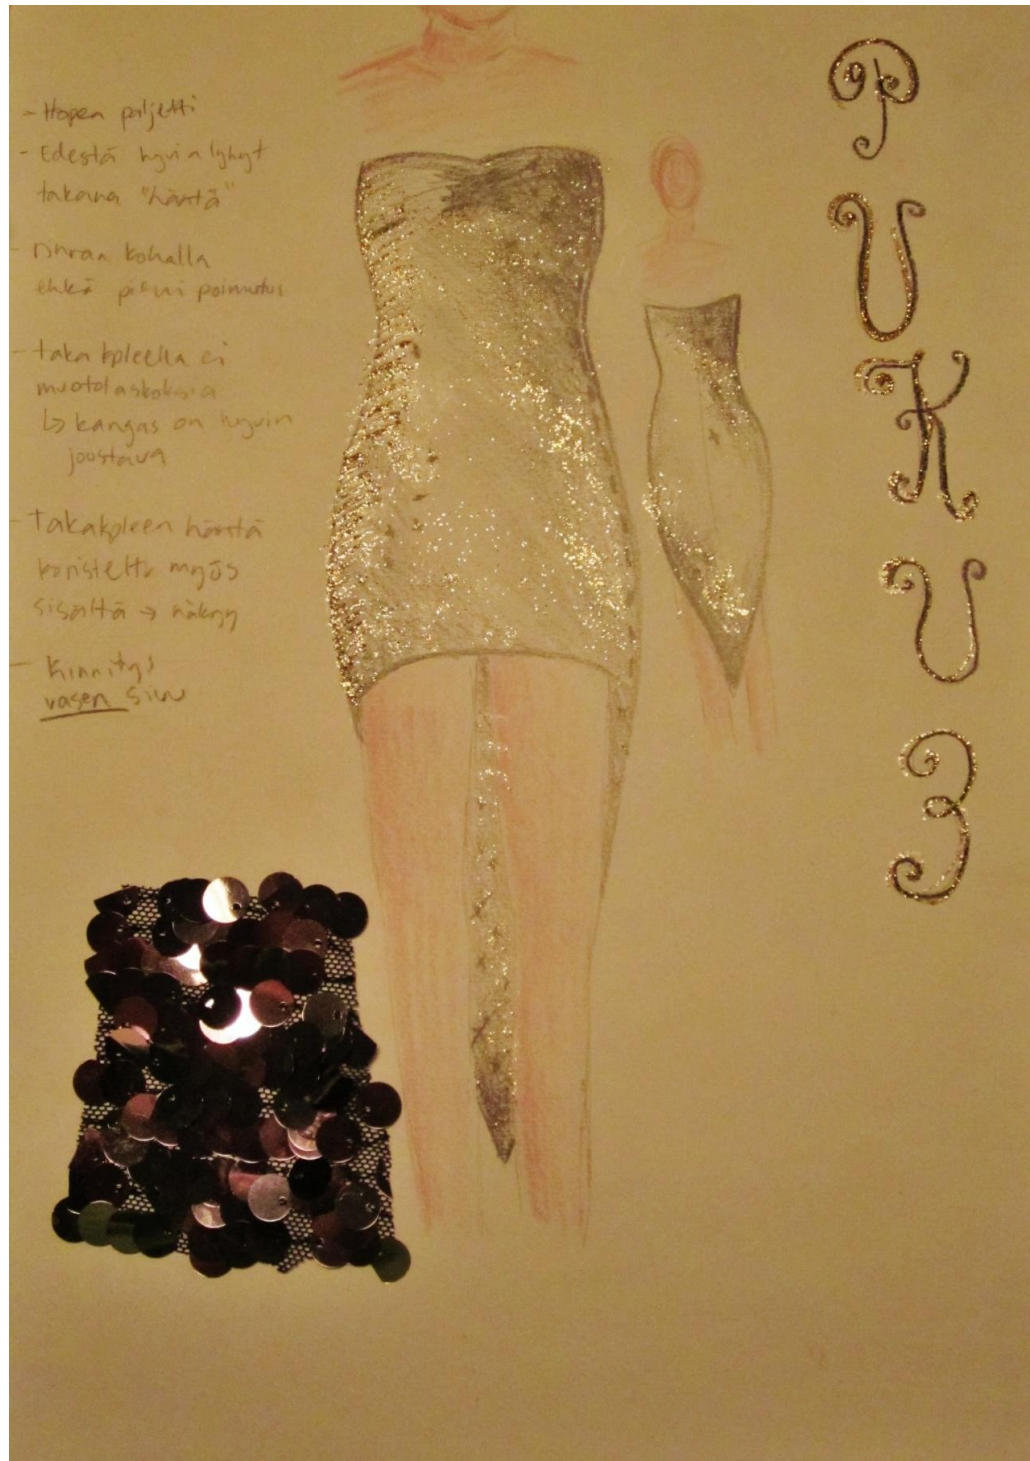 - Hopea paljetti
- Edestä hyvin lyhyt
takana "häntä"
- kohalla
ehkä pieni poimutus
- takakpleella ei
muotolaskoksia
↳ kangas on hyvin
joustava
- Takakpleen häntä
koristeltu myös
sisältä → näkyy
- Kinnitys
vasen sivu
PUKU 3